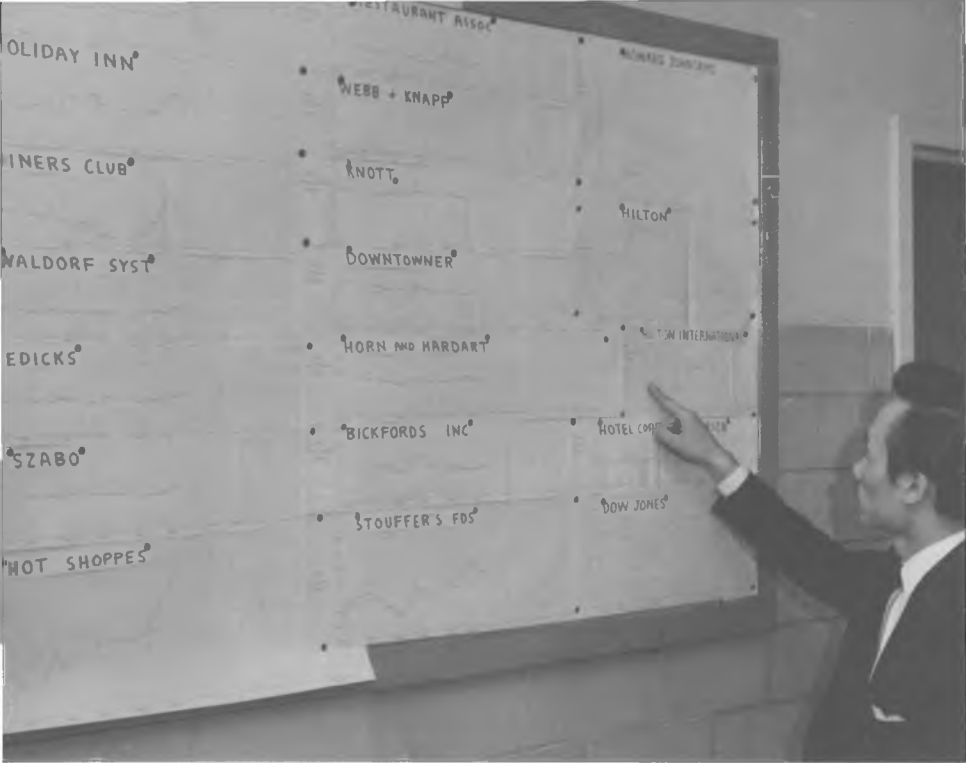 OLIDAY INN
INERS CLUB
WALDORF SYST
EDICKS
SZABO
HOT SHOPPES
RESTAURANT ASSOC
WEBB + KNAPP
KNOTT
DOWNTOWNER
HORN AND HARDART
BICKFORDS INC
STOUFFER'S FDS
HOWARD JOHNSONS
HILTON
TON INTERNATIONAL
HOTEL COR
DOW JONES